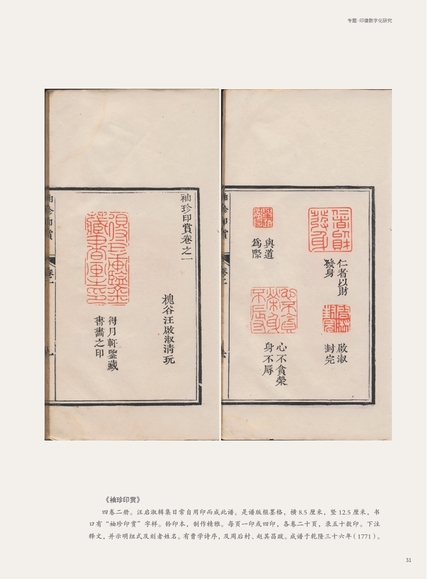 专题·印谱数字化研究
袖珍印賞卷之一
槐谷汪啟淑清玩
得月軒鑒藏
書畫之印
袖珍印賞
卷一
仁者以財
發身
啟淑
封完
與道
為際
心不貪榮
身不辱
袖珍印賞
卷一
《袖珍印赏》
四卷二册。汪启淑辑集日常自用印而成此谱。是谱版框墨格，横 8.5 厘米，竖 12.5 厘米，书
口有“袖珍印赏”字样。钤印本，制作精雅。每页一印或四印，各卷二十页，录五十数印。下注
释文，并示明钮式及刻者姓名。有曹学诗序，及周后村、赵其昌跋。成谱于乾隆三十六年（1771）。
31